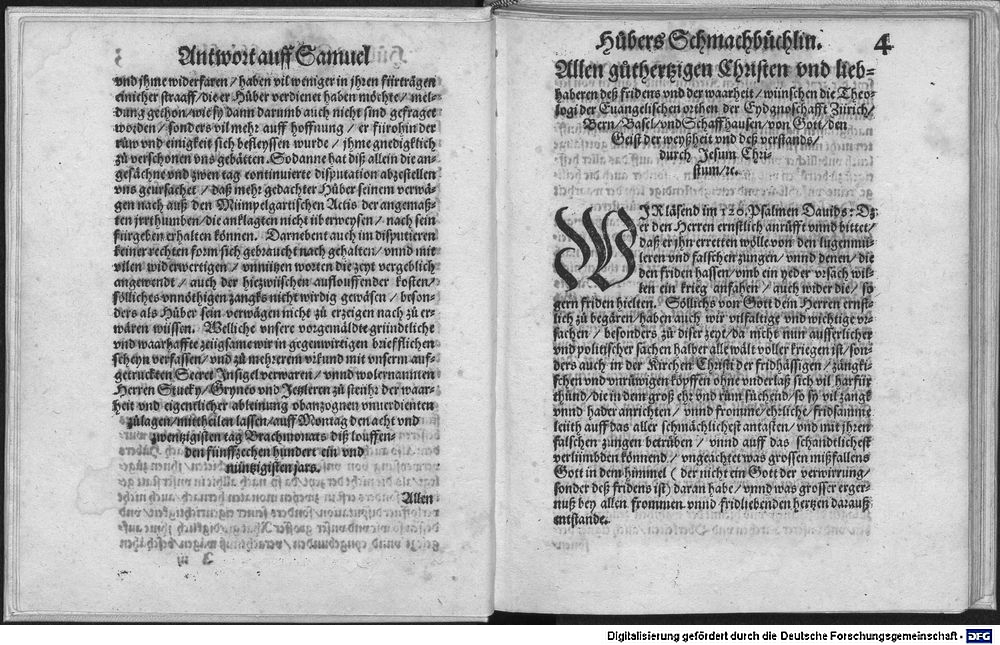 Antwort auff Samuel
vnd jhme widerfaren / haben vil weniger in jhren fürträgen
einicher straaff / die er Hůber verdienet haben möchte / mel-
dung gethon / wie sy dann darumb auch nicht sind gefraget
worden / sonders vil mehr auff hoffnung / er fürohin der
růw vnd einigkeit sich befleyssen wurde / jhme gnedigklich
zů verschonen vns gebätten. So danne hat diß allein die an-
gesächne vnd zwen tag continuierte disputation abzestellen
vns geursachet / daß mehr gedachter Hůber seinem verwä-
gen nach auß den Mümpelgartischen Actis der angemaß-
ten jrrthumben / die anklagten nicht überweysen / nach sein
fürgeben erhalten können. Darnebent auch im disputieren
keiner rechten form sich gebraucht nach gehalten / vnnd mit
vilen widerwertigen / vnnützen worten die zeyt vergeblich
angewendt / auch der hiezwüschen aufflouffender kosten /
sölliches vnnöthigen zangks nicht wirdig gewäsen / beson-
ders als Hůber sein verwägen nicht zů erzeigen nach zů er-
wären wüssen. Welliche vnsere vorgemäldte gründtliche
vnd waarhaffte zeügsame wir in gegenwirtigen briefflichen
scheyn verfassen / vnd zů mehrerem vrkund mit vnserm auf-
getruckten Secret Insigel verwaren / vnnd wolernannten
Herren Stucky / Gryneo vnd Jetzleren zů stenhr der waar-
heit vnd eigentlicher ableinung obanzognen vnuerdienten
zůlagen / mittheilen lassen / auff Montag den acht vnd
zwentzigisten tag Brachmonats diß louffen-
den fünffzechen hundert ein vnd
nüntzigisten jars.
Allen
Hůbers Schmachbüchlin. 4
Allen gůthertzigen Christen vnd lieb-
haberen deß fridens vnd der waarheit / wünschen die Theo-
logi der Euangelischen orthen der Eydgnoschafft Zürich /
Bern / Basel / vnd Schaffhausen / von Gott / den
Geist der weyßheit vnd deß verstands /
durch Jesum Chri-
stum / ꝛc.
WIR läsend im 120. Psalmen Dauids: Dz
er den Herren ernstlich anrüfft vnnd bittet /
daß er jhn erretten wölle von den lugenmü-
leren vnd falschen zungen / vnnd denen / die
den friden hassen / vmb ein yeder vrsach wil-
len ein krieg anfahen / auch wider die / so
gern friden hielten. Söllichs von Gott dem Herren ernst-
lich zů begären / haben auch wir vilfaltige vnd wichtige vr-
sachen / besonders zů diser zeyt / da nicht nun ausserlicher
vnd politischer sachen halber alle wält voller kriegen ist / son-
ders auch in der Kirchen Christi der fridhässigen / zängki-
schen vnd vnrüwigen köpffen ohne vnderlaß sich vil harfür
thůnd / die in dem groß ehr vnd růn sůchend / so sy vil zangk
vnnd hader anrichten / vnnd fromme / ehrliche / fridsamme
leüth auff das aller schmächlichest antasten / vnd mit jhren
falschen zungen betrüben / vnnd auff das schandtlichest
verlümbden könnend / vngeachtet was grossen mißfallens
Gott in dem himmel ( der nicht ein Gott der verwirrung /
sonder deß fridens ist) daran habe / vnnd was grosser erger-
nuß bey allen frommen vnnd fridliebenden hertzen darauß
entstande.
Digitalisierung gefördert durch die Deutsche Forschungsgemeinschaft - DFG